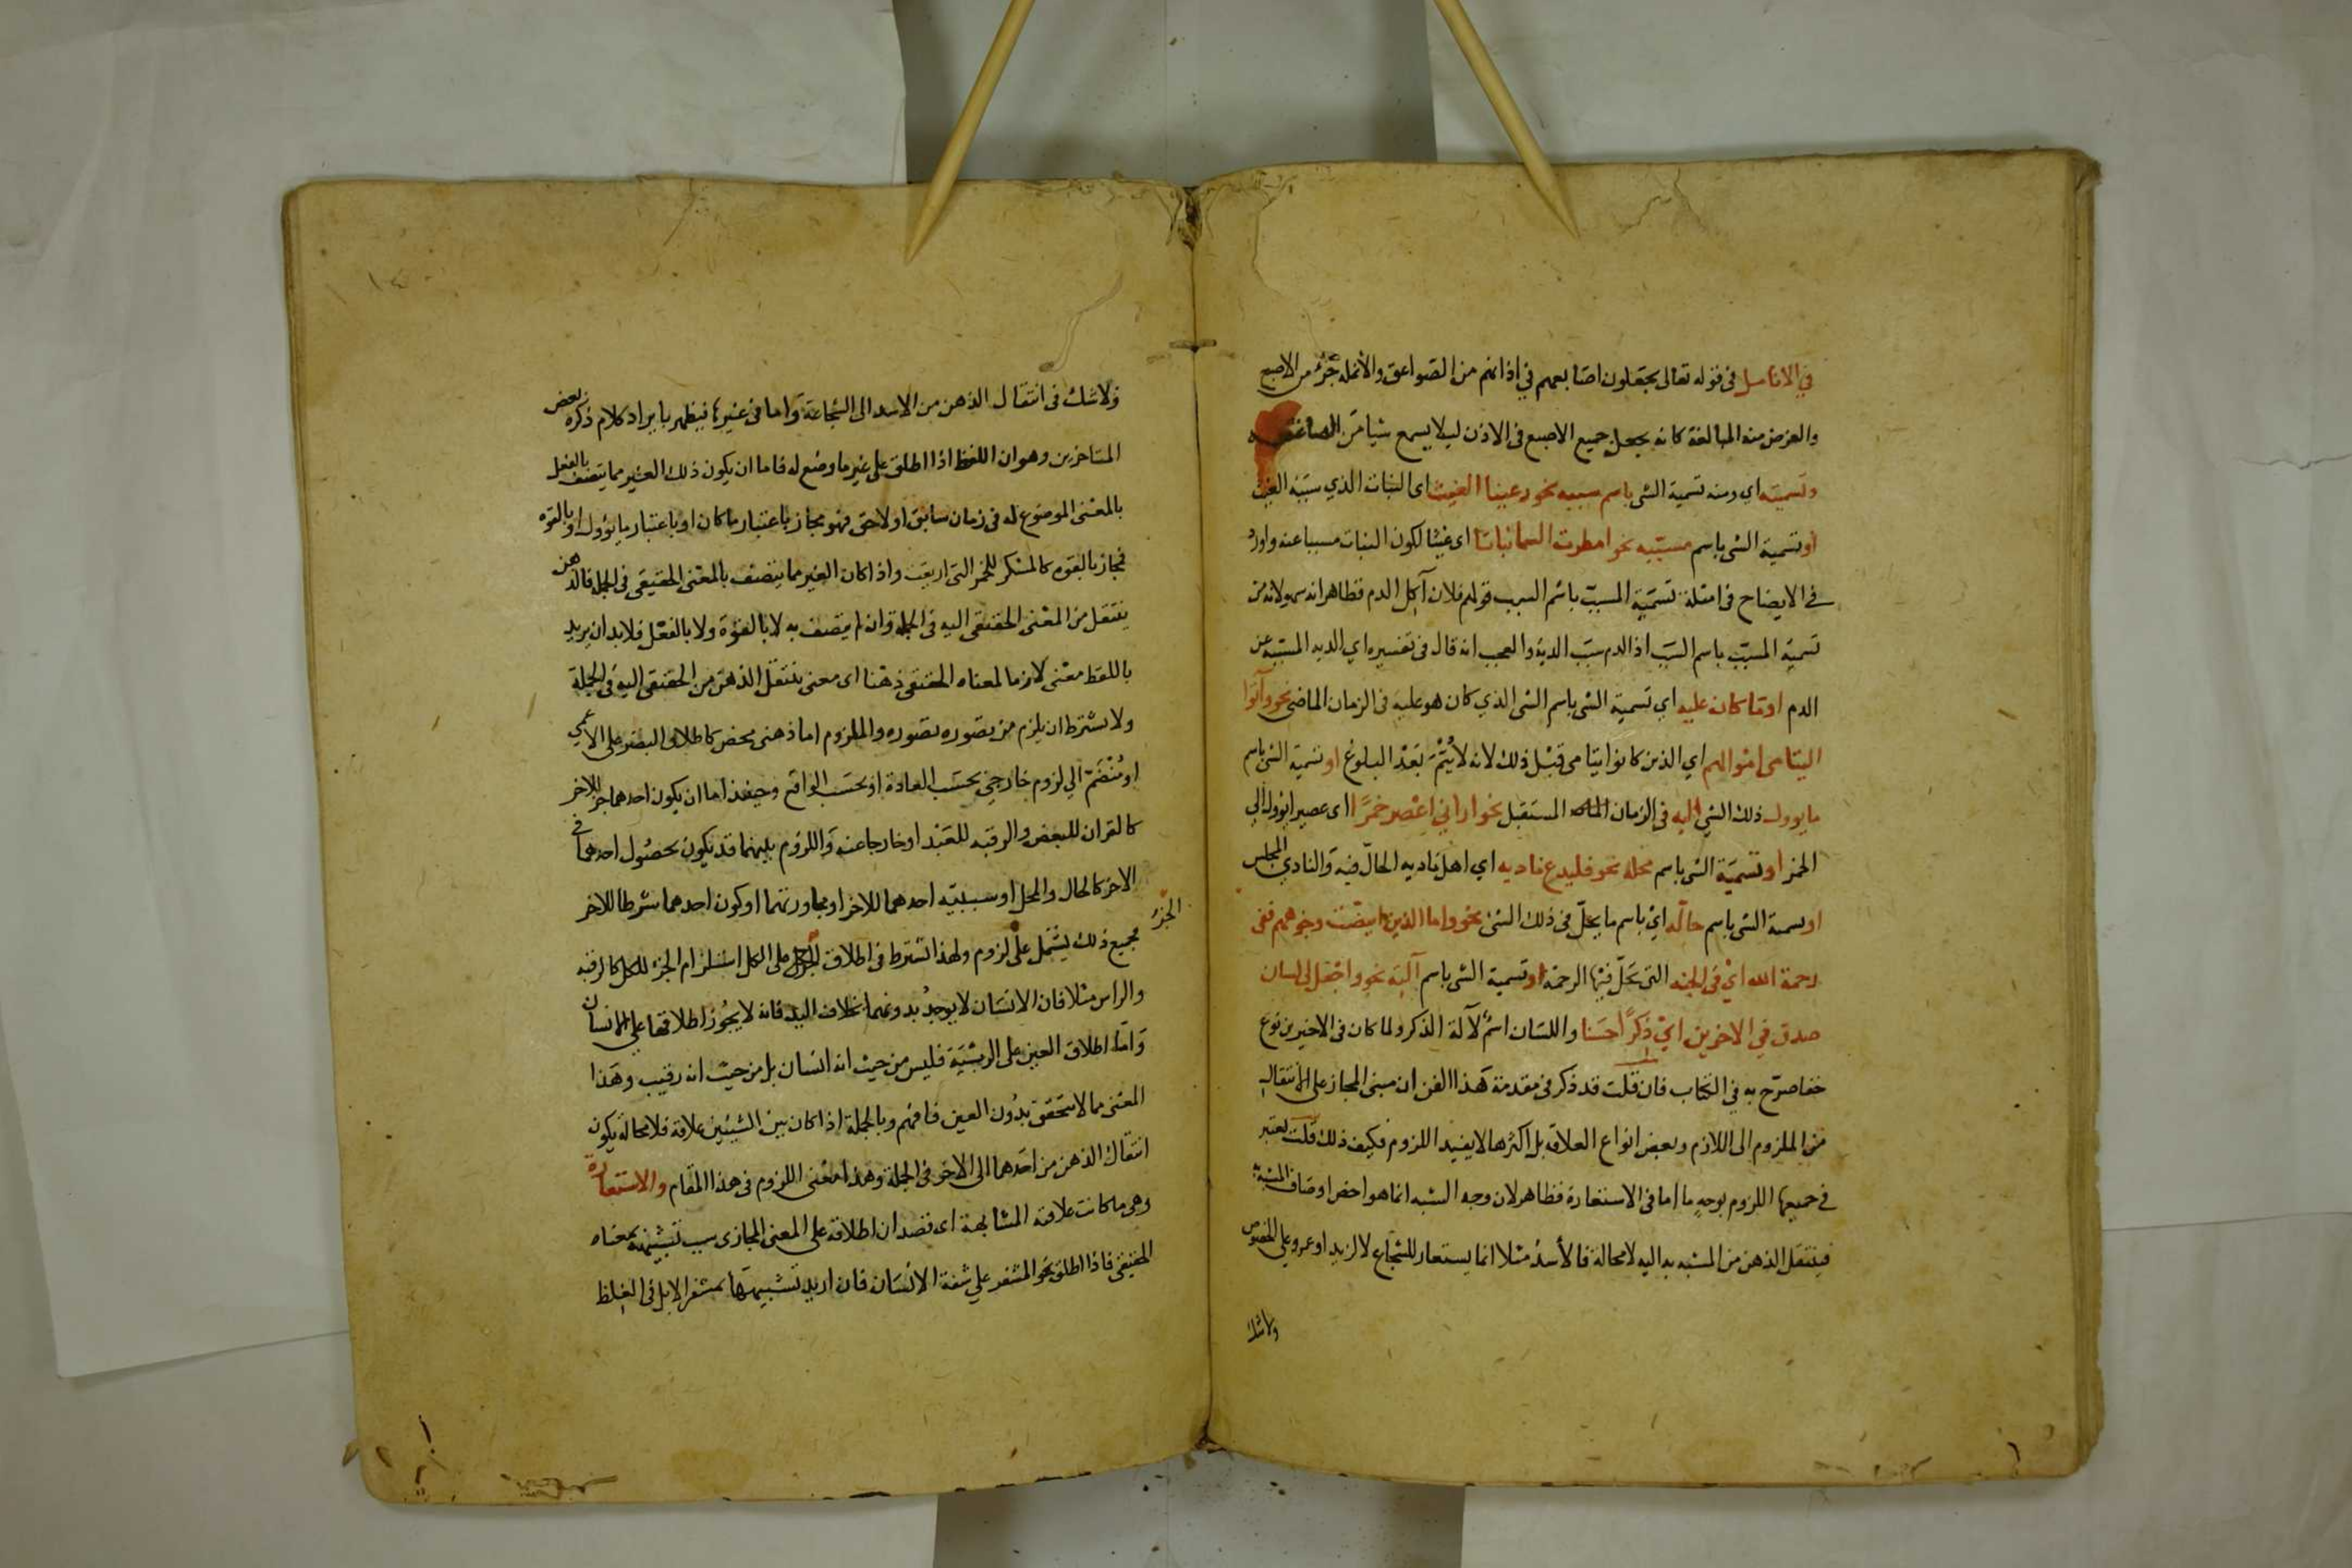 في الانامل في قوله تعالى يجعلون اصابعهم في اذانهم من الصواعق والأنملة جزء من الاصبع
والغرض منه المبالغة كانه يجعل جميع الاصبع في الاذن ليلا يسمع شيا من الصاعقه
وتسميته اي ومنه تسمية الشي باسم سببه نحو رعينا الغيث اى النبات الذي سببه الغيث
او تسمية الشي باسم مسببه نحو امطرت السما نباتا اى غيثا لكون النبات مسببا عنه واورد
في الايضاح في امثلة تسمية المسبب باسم السبب قولهم فلان آكل الدم فظاهر انه سهو لانه من
تسمية المسبب باسم السبب اذ الدم سبب الدية والعجب انه قال في تفسيره اي الديه المسببة عن
الدم او ما كان عليه اي تسمية الشي باسم الشي الذي كان هو عليه في الزمان الماضي نحو وآتوا
اليتامى اموالهم اي الذين كانوا يتامى قبل ذلك لانه لا يُتْمَ بَعْدَ البلوغ او تسمية الشي باسم
ما يوول ذلك الشي اليه في الزمان المستقبل نحو اراني اعصر خمرًا اى عصيرا يؤول الى
الخمر او تسمية الشي باسم محله نحو فليدع ناديه اي اهل ناديه الحالّ فيه والنادي المجلس
او تسمية الشي باسم حالّه اي باسم ما يحلّ في ذلك الشي نحو واما الذين ابيضّت وجوههم ففى
رحمة الله اي في الجنه التي تحلّ فيها الرحمة او تسمية الشي باسم آلته نحو واجعل لي لسان
صدق في الاخرين اي ذكرًا حسنا واللسان اسم لآلة الذكر ولما كان في الاخيرين نوع
خفا صرّح به في الكتاب فان قلت قد ذكر في مقدمة هذا الفن ان مبنى المجاز على الانتقال
من الملزوم الى اللازم وبعض انواع العلاقة بل اكثرها لا يفيد اللزوم فكيف ذلك قلت يعتبر
في جميعها اللزوم بوجه ما اما في الاستعارة فظاهر لان وجه الشبه انما هو اخص اوصاف المشبه به
فينتقل الذهن من المشبه به اليه لا محالة فالأسد مثلا انما يستعار للشجاع لا لزيد او عمرو على الخصوص
ولا شك
ولا شك في انتقال الذهن من الاسد الى الشجاعة واما في غيرها فيظهر بايراد كلام ذكره بعض
المتاخرين وهو ان اللفظ اذا اطلق على غير ما وضع له فاما ان يكون ذلك الغير مما يتصف بالفعل
بالمعنى الموضوع له في زمان سابق او لاحق فهو مجاز باعتبار ما كان او باعتبار ما يؤول او بالقوه
فمجاز بالقوه كالمسكر للخمر التى اريقت واذا كان الغير مما يتصف بالمعنى الحقيقي في الجملة فالذهن
ينتقل من المعنى الحقيقى اليه في الجملة وان لم يتصف به لا بالقوة ولا بالفعل فلا بد ان يريد
باللفظ معنى لازما لمعناه الحقيقى ذهنا اى معنى ينتقل الذهن من الحقيقى اليه فى الجملة
ولا يشترط ان يلزم من تصوره تصوره والملزوم اما ذهنى محض كاطلاق البصير على الاعمى
او مُنْضَمّ الي لزوم خارجي بحسب العادة او بحسب الواقع وحينئذ اما ان يكون احدهما جزء للاخر
كالقران للبعض والرقبه للعبد او خارجا عنه واللزوم بينهما قد يكون بحصول احدهما في
الاخر كالحال والمحل او سببية احدهما للاخر او مجاورتهما او كون احدهما شرطا للاخر
الجزء
فجميع ذلك يشتمل على لزوم ولهذا تشترط في اطلاق على الكل استلزام الجزء للكل كالرقبه
والراس مثلا فان الانسان لا يوجد بدونهما بخلاف اليد فانه لا يجوز اطلاقها على الانسان
واما اطلاق العين على الربيئة فليس من حيث انه انسان بل من حيث انه رقيب وهذا
المعنى مما لا يتحقق بدون العين فافهم وبالجملة اذا كان بين الشيئين علاقة فلا محالة يكون
انتقال الذهن من احدهما الى الاخر فى الجملة وهذا معنى اللزوم فى هذا المقام والاستعارة
وهي ما كانت علاقته المشابهة اى قصد ان اطلاقه على المعنى المجازى بسبب تشبيهه بمعناه
الحقيقى فاذا اطلق نحو المشفر علي شفة الانسان فان اريد تشبيهها بمشفر الابل في الغلظ